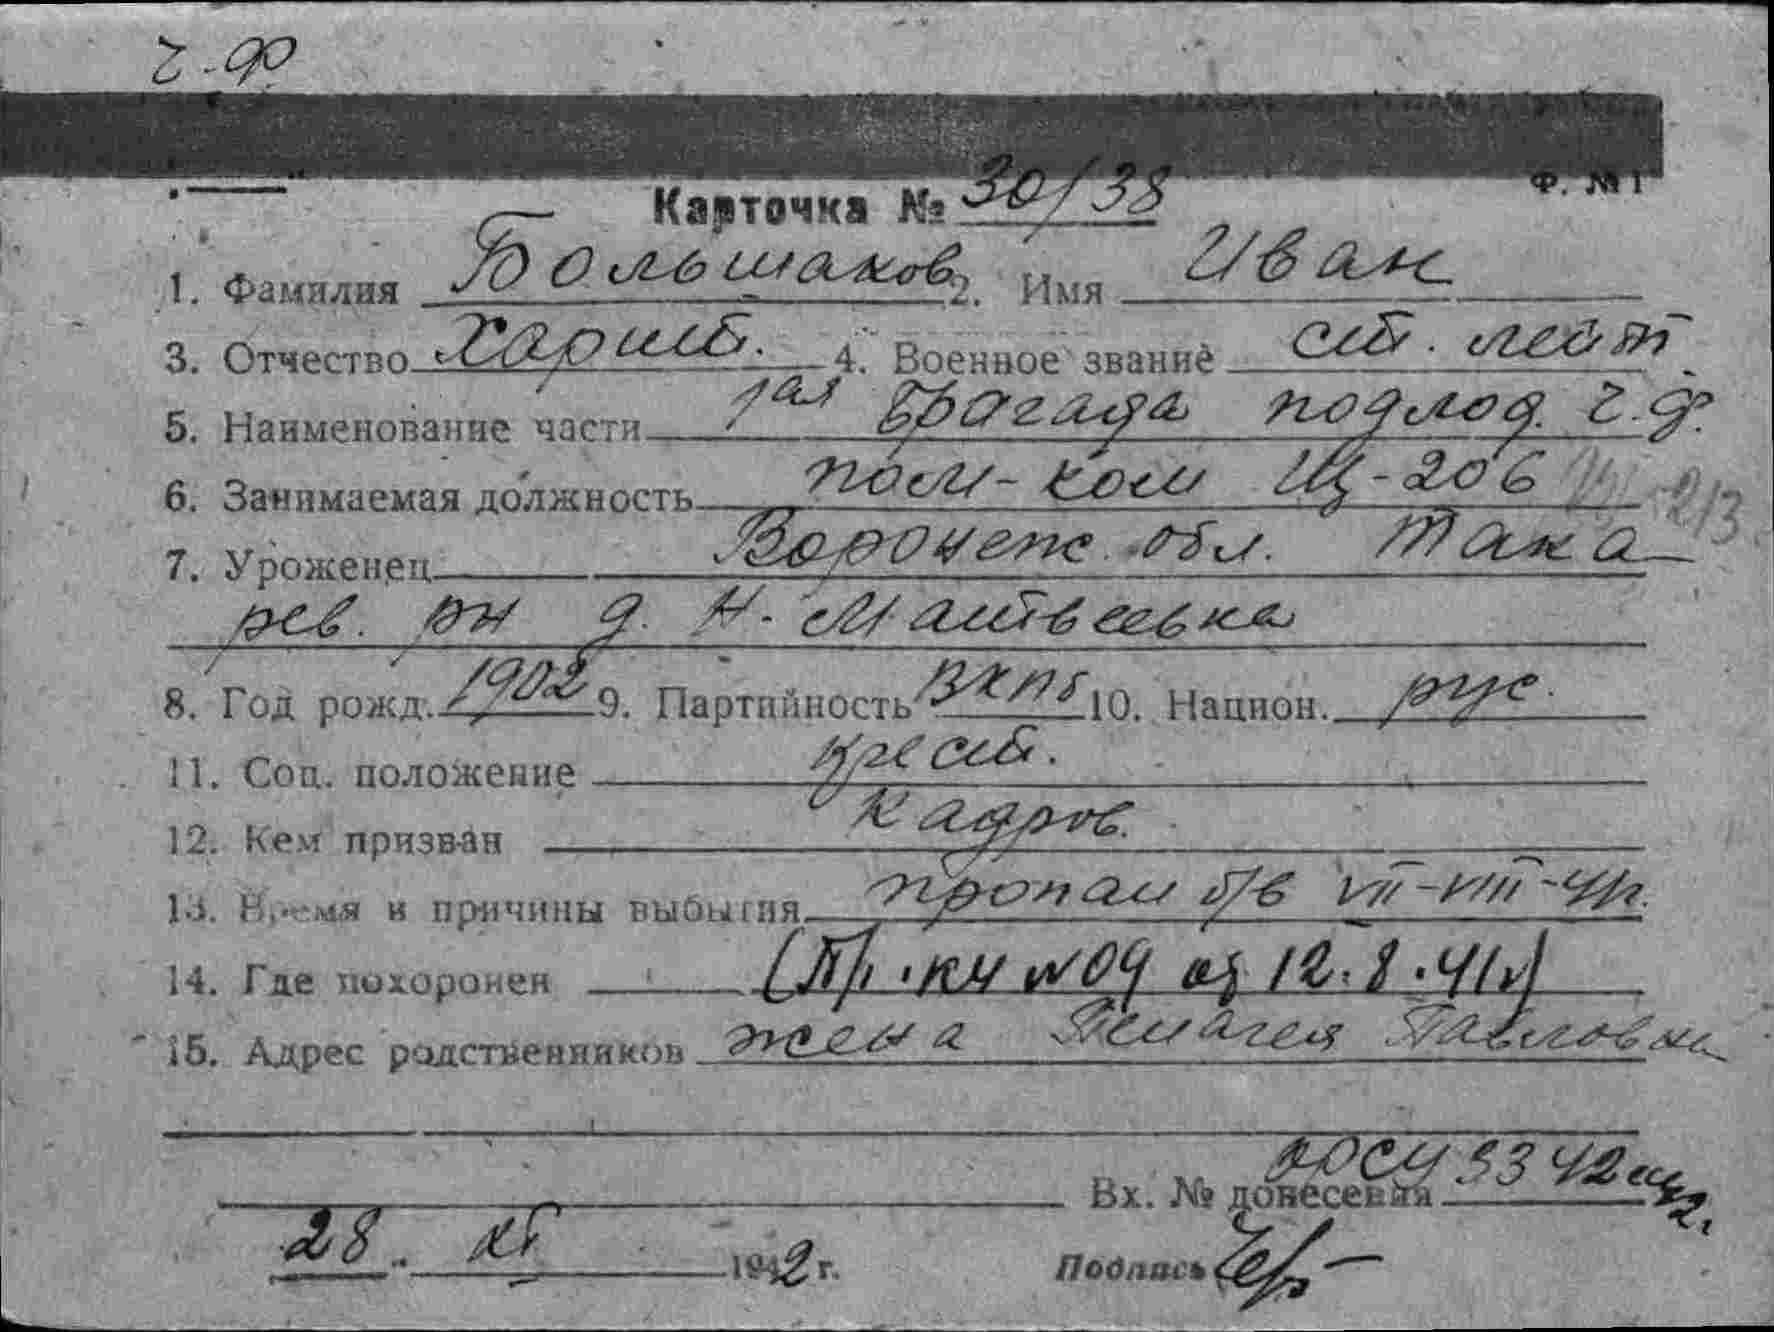 Ч.Ф
Ф. № 1
Карточка № 30/38
1. Фамилия Большаков 2. Имя Иван
3. Отчество Харит. 4. Военное звание ст. лейт
5. Наименование части 1ая Брагада подлод. Ч.Ф.
6. Занимаемая должность пом-ком Щ-206 213
7. Уроженец Воронеж. обл. Така
рев. рн д. Н. Матвеевка
8. Год рожд. 1902 9. Партийность ВКПб 10. Национ. рус.
11. Соц. положение крест.
12. Кем призван Кадров.
13. Время и причины выбытия пропал б/в VII-VIII-41г.
14. Где похоронен (Пр. КЧ №09 от 12.8.41г)
15. Адрес родственников жена Пелагея Павловна
Вх. № донесения 3342
28. XI 1942 г. Подпись